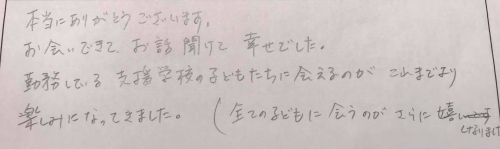 本当にありがとうございます。
お会いできて、お話聞けて幸せでした。
勤務している支援学校の子どもたちに会えるのが これまでより
楽しみになってきました。(全ての子どもに会うのが さらに嬉
しくなりました